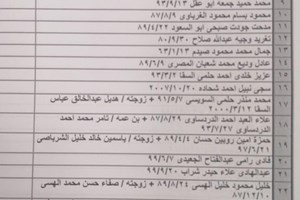 محمد حميد جمعه ابو عقل ٩٣/٩/١٣
١٠ محمود بسام محمود الغرباوي ٨٧/٨/٩
١١ مدحت جودت صبحي ابو السعود ٨٩/٤/٢٢
١٢ تغريد وجيه عبدالله صلاح ٨٠/٩/٣٠
١٣ جمال محمد محمود صيدم ٦٣/١/١٣
١٤ عادل وديع محمد شعبان المصري ٨٩/٦/٩
١٥ عزيز خلدي احمد حلمي السقا ٩٣/٣/٢
١٦ سجى نبيل احمد شحاده ٢٠٠٧/١٠/٢٠
١٧ محمد منذر حلمي السويسي ٩١/٥/٧ + زوجته / هديل عبدالخالق عباس السقا ٢٠٠٠/٣/١٢
١٨ علاء العبد احمد الدرداساوي ٨٧/٨/٢٩ + بن عمه / تامر محمد احمد الدرداساوي ٩٣/٧/٢٧
١٩ حمزة امين روبين حسان ٨٩/٤/٤ + زوجته / ياسمين خالد خليل الشرباصي ٩٧/٦/٢١
٢٠ فادى رامى عبدالفتاح الجعيدى ٩٩/٦/٧
٢١ عبدالهادى علاء حيدر شراب ٩٩/٩/٢٠
٢٢ خليل محمود خليل الهسى ٨٩/٨/٢٤ + زوجته / صفاء حسن محمد الهسى ٨٧/١٢/١٠